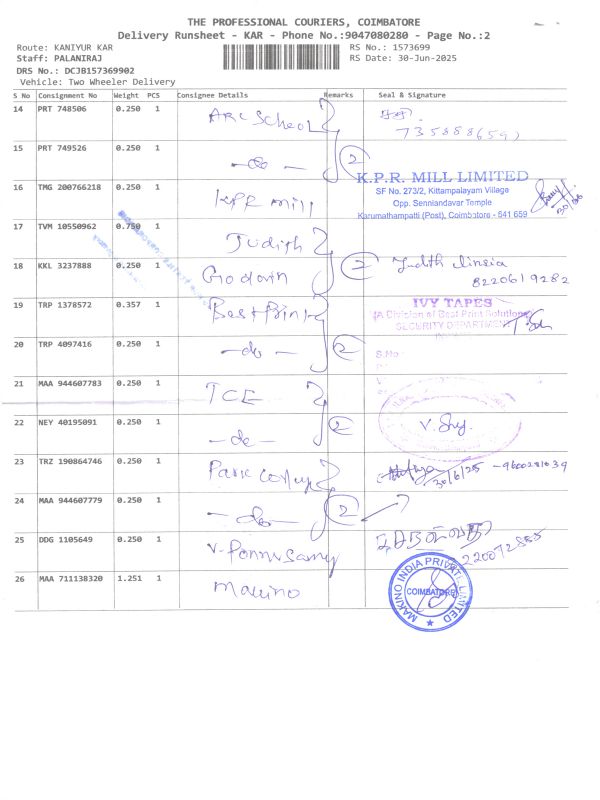 THE PROFESSIONAL COURIERS, COIMBATORE
Delivery Runsheet - KAR - Phone No.:9047080280 - Page No.:2
Route: KANIYUR KAR
RS No.: 1573699
Staff: PALANIRAJ
RS Date: 30-Jun-2025
DRS No.: DCJB157369902
Vehicle: Two Wheeler Delivery
S No Consignment No Weight PCS Consignee Details Remarks Seal & Signature
14 PRT 748506 0.250 1 ARC School
15 PRT 749526 0.250 1 -do- 2
K.P.R. MILL LIMITED
16 TMG 200766218 0.250 1 KPR mill
SF No. 273/2, Kittampalayam Village
Opp. Senniandavar Temple
Karumathampatti (Post), Coimbatore - 641 659
30/06
17 TVM 10550962 0.750 1 Judith
18 KKL 3237888 0.250 1 Godwin 2 Judith
8220619282
19 TRP 1378572 0.357 1 Best Print
IVY TAPES
(A Division of Best Print Solutions)
SECURITY DEPARTMENT
20 TRP 4097416 0.250 1 -do- 2
S.No
21 MAA 944607783 0.250 1 TCE
22 NEY 40195091 0.250 1 -do- 2 V. Shy.
23 TRZ 190864746 0.250 1 Park College
30/6/25 - 9600281039
24 MAA 944607779 0.250 1 -do- 2
25 DDG 1105649 0.250 1 V. Ponnusamy
220072885
26 MAA 711138320 1.251 1 Makino
MAKINO INDIA PRIVATE LIMITED
COIMBATORE